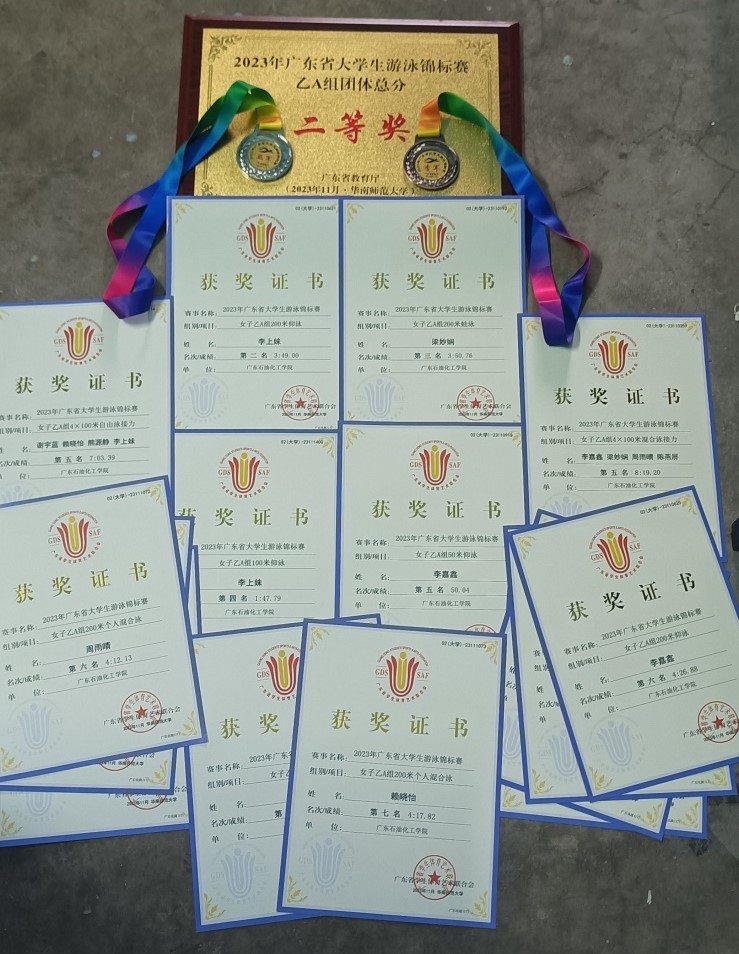 2023年广东省大学生游泳锦标赛
乙A组团体总分
二等奖
广东省教育厅
（2023年11月·华南师范大学）
GDS SAF
获奖证书
赛事名称： 2023年广东省大学生游泳锦标赛
组别/项目： 女子乙A组200米仰泳
姓 名： 李上妹
名次/成绩： 第二名 3:49.00
单 位： 广东石油化工学院
GDS SAF
获奖证书
赛事名称： 2023年广东省大学生游泳锦标赛
组别/项目： 女子乙A组200米蛙泳
姓 名： 梁妙娴
名次/成绩： 第三名 3:50.76
单 位： 广东石油化工学院
GDS SAF
获奖证书
赛事名称： 2023年广东省大学生游泳锦标赛
组别/项目： 女子乙A组4×100米自由泳接力
姓 名： 谢宇蓝 赖晓怡 熊源静 李上妹
名次/成绩： 第五名 7:03.39
单 位： 广东石油化工学院
GDS SAF
获奖证书
赛事名称： 2023年广东省大学生游泳锦标赛
组别/项目： 女子乙A组4×100米混合泳接力
姓 名： 李嘉鑫 梁妙娴 周雨晴 陈燕丽
名次/成绩： 第五名 8:19.20
单 位： 广东石油化工学院
GDS SAF
获奖证书
2023年广东省大学生游泳锦标赛
女子乙A组100米仰泳
李上妹
第四名 1:47.79
广东石油化工学院
GDS SAF
获奖证书
赛事名称： 2023年广东省大学生游泳锦标赛
组别/项目： 女子乙A组50米仰泳
姓 名： 李嘉鑫
名次/成绩： 第五名 50.04
单 位： 广东石油化工学院
GDS SAF
获奖证书
赛事名称： 2023年广东省大学生游泳锦标赛
组别/项目： 女子乙A组200米个人混合泳
姓 名： 周雨晴
名次/成绩： 第六名 4:12.13
单 位： 广东石油化工学院
GDS SAF
获奖证书
赛事名称： 2023年广东省大学生游泳锦标赛
组别/项目： 女子乙A组200米仰泳
姓 名： 李嘉鑫
名次/成绩： 第六名 4:26.88
单 位： 广东石油化工学院
获奖
赛事名称： 2023年广
组别/项目： 女子乙A
姓 名：
名次/成绩： 第
单 位：
GDS SAF
获奖证书
赛事名称： 2023年广东省大学生游泳锦标赛
组别/项目： 女子乙A组200米个人混合泳
姓 名： 赖晓怡
名次/成绩： 第七名 4:17.82
单 位： 广东石油化工学院
广东省学生体育艺术联合会